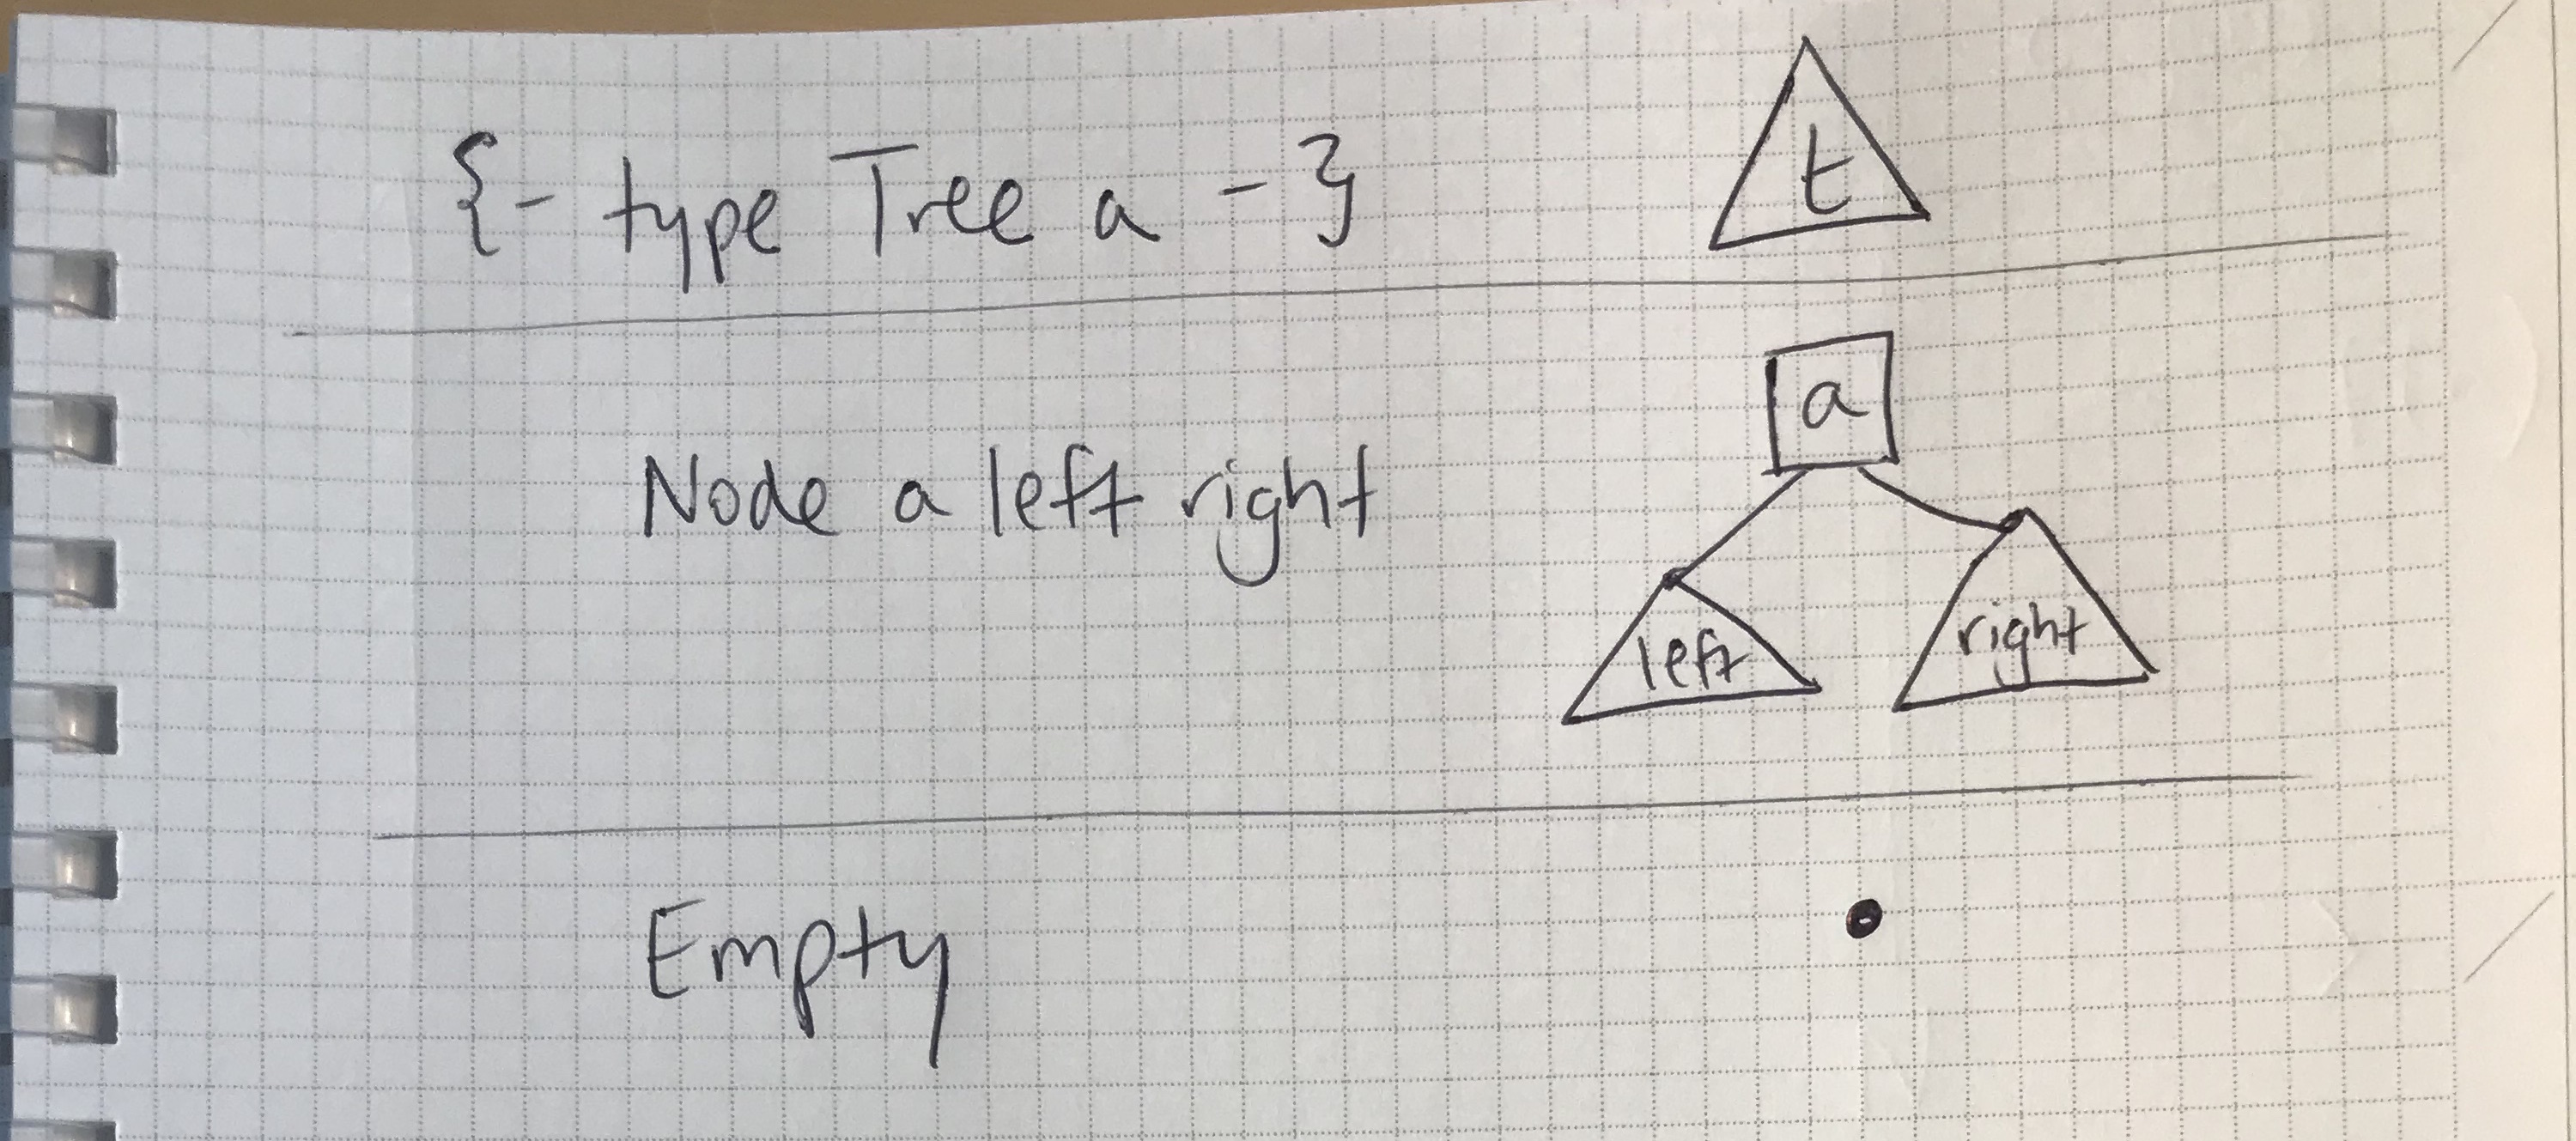 {- type Tree a -}
t
Node a left right
a
left
right
Empty